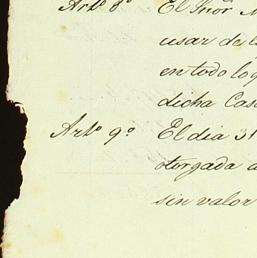 Artº 8º El Señor M
usar de l
en todo lo q
dicha Cas
Artº 9º El dia 31
otorgada a
sin valor